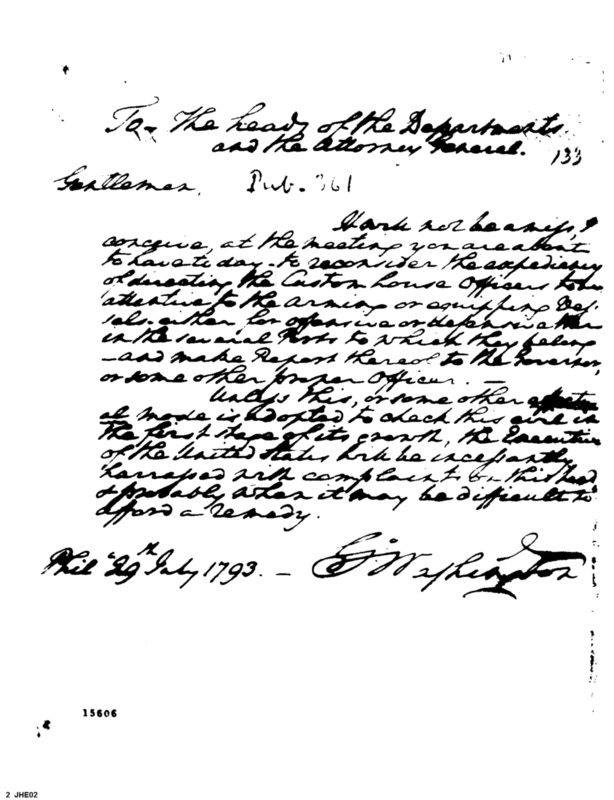 To - The heads of the Departments
and the Attorney General.
133
Gentlemen,
Pub. 361
It will not be amiss, I
conceive, at the meeting you are about
to have to day - to reconsider the expediency
of directing the Custom House Officers to be
attentive to the arming or equipping Ves-
sels either for offensive or defensive
in the several Ports to which they belong
- and make Report thereof to the Governor,
or some other proper Officer. -
Unless this, or some other effectu
al mode is adopted to check this evil in
the first stage of its growth, the Executive
of the United States will be incessantly
harrassed with complaints on this head
& probably when it may be difficult to
afford a remedy.
Phila 29th July 1793. -
G Washington
15606
2 JHE02